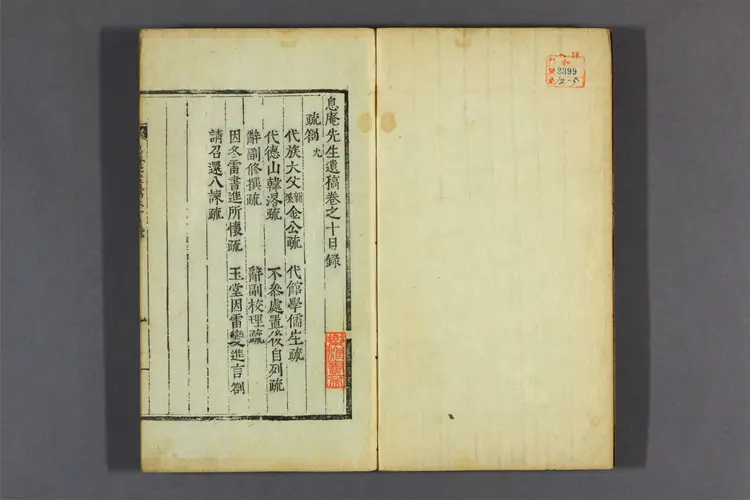 2399
12-5
息庵先生遺稿卷之十目録
疏箚 九
代族大父 金公疏 代館學儒生疏
代德山韓 疏 不參處置後自列疏
辭副修撰疏 辭副校理疏
因冬雷書進所懷疏 玉堂因雷變進言劄
請召還八諫疏